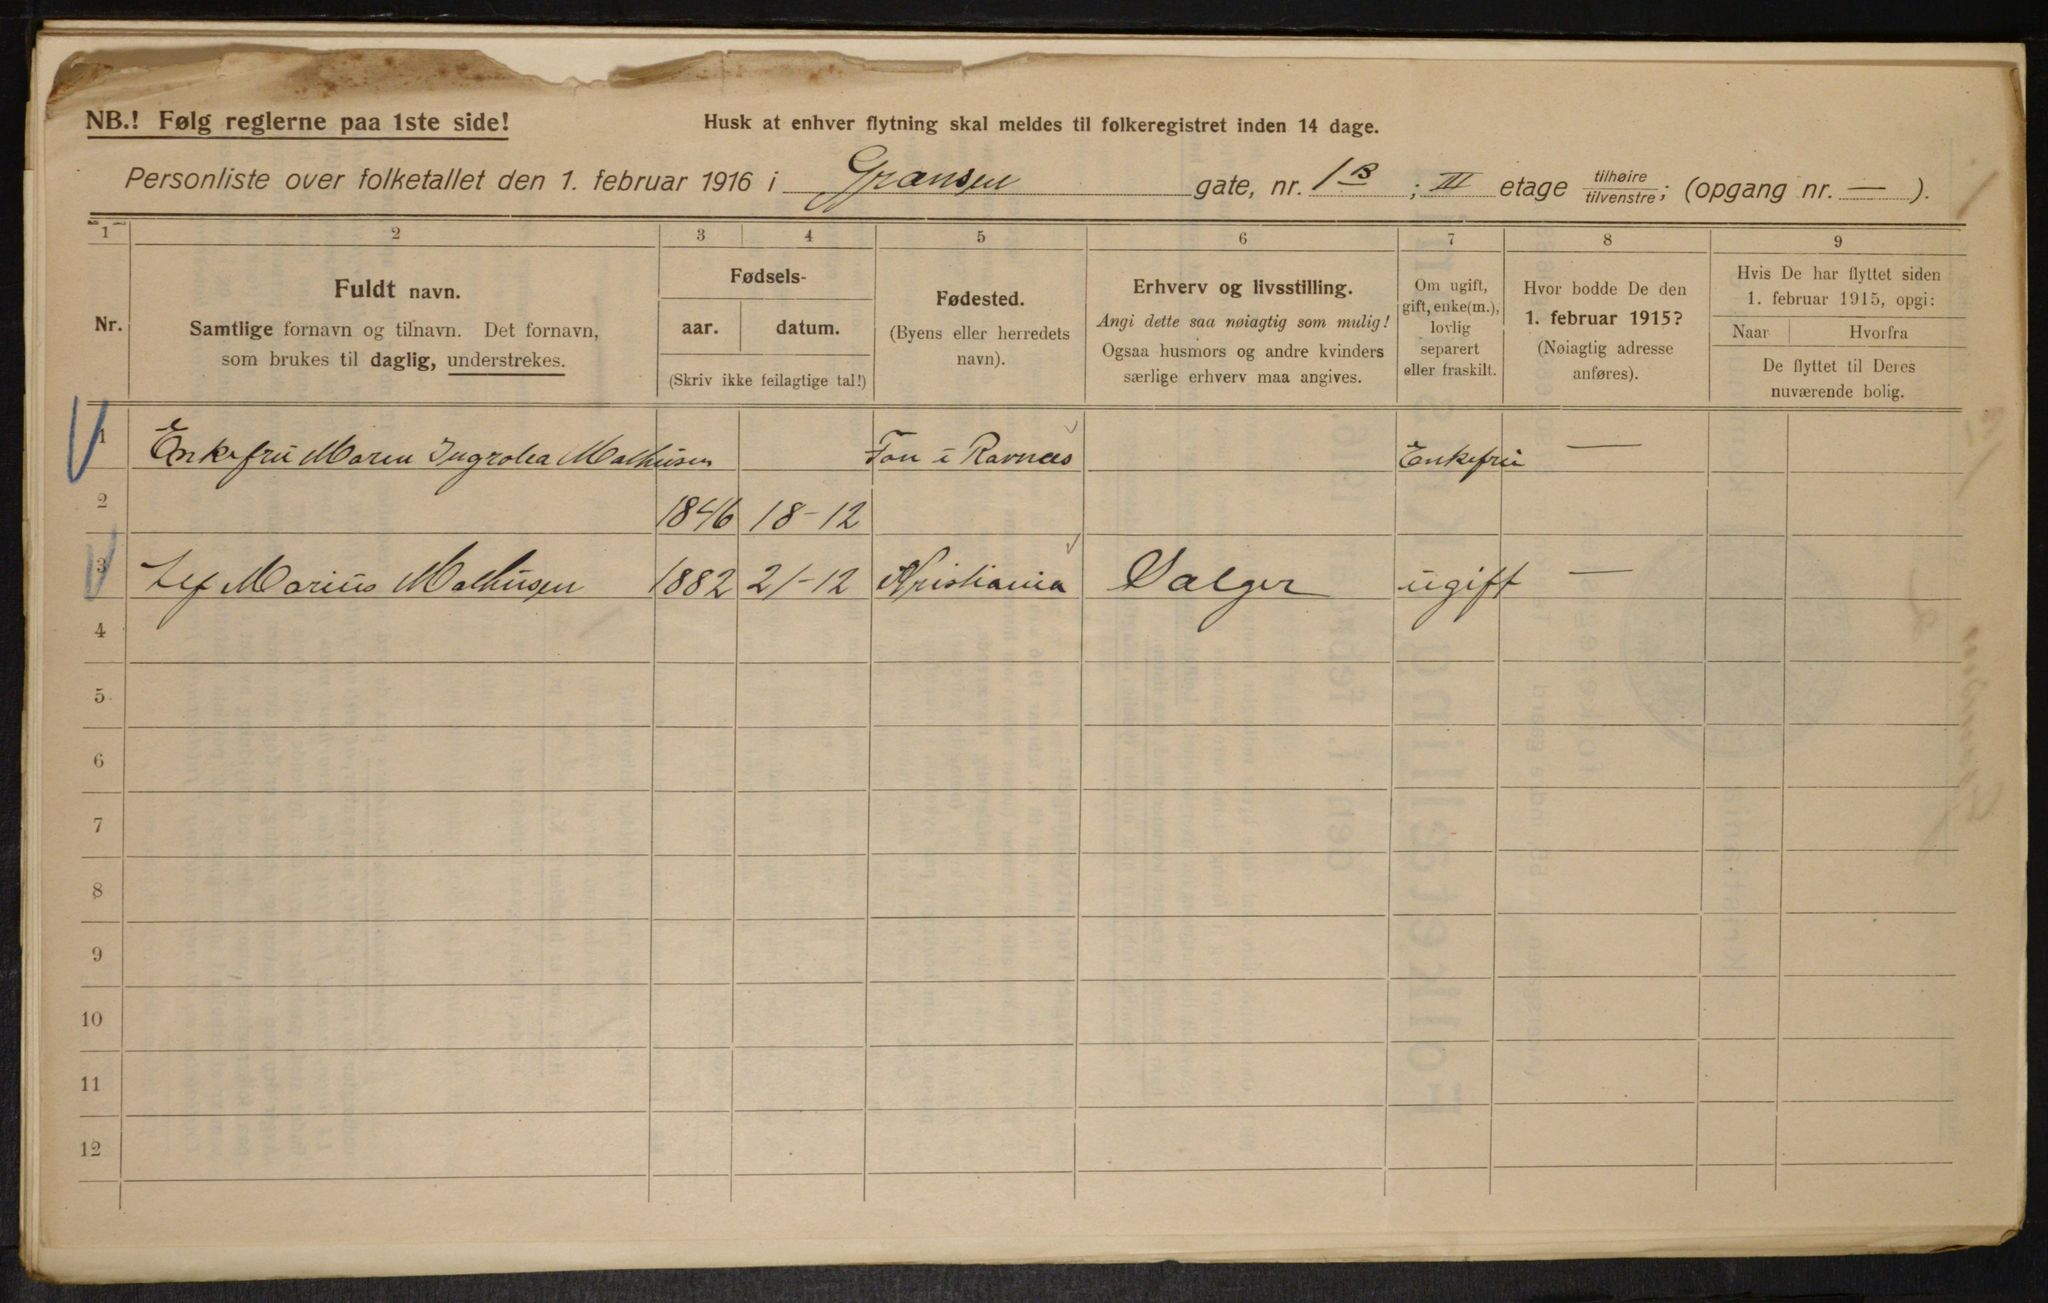 NB.! Følg reglerne paa 1ste side!
Husk at enhver flytning skal meldes til folkeregistret inden 14 dage.
Personliste over folketallet den 1. februar 1916 i Grænsen gate, nr. 1 B ; III etage tilhøire/tilvenstre; (opgang nr. — ).
1 2 3 4 5 6 7 8 9
Nr.
Fuldt navn.
Samtlige fornavn og tilnavn. Det fornavn,
som brukes til daglig, understrekes.
Fødsels-
aar. datum.
(Skriv ikke feilagtige tal!)
Fødested.
(Byens eller herredets
navn).
Erhverv og livsstilling.
Angi dette saa nøiagtig som mulig!
Ogsaa husmors og andre kvinders
særlige erhverv maa angives.
Om ugift,
gift, enke(m.),
lovlig
separert
eller fraskilt.
Hvor bodde De den
1. februar 1915?
(Nøiagtig adresse
anføres).
Hvis De har flyttet siden
1. februar 1915, opgi:
Naar Hvorfra
De flyttet til Deres
nuværende bolig.
1 Enkefru Maren Mathisen i Ravnæs Enkefru —
2 1846 18-12
3 Marius Mathisen 1882 21-12 Kristiania Sælger ugift —
4
5
6
7
8
9
10
11
12